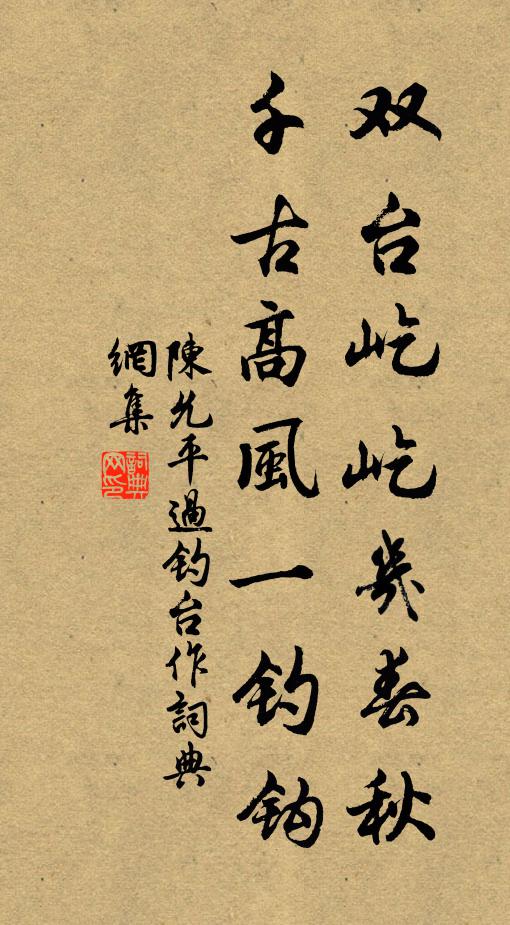 双台屹屹幾春秋
千古高風一钓钩
陳允平過钓台作詞典
網集
詞典网印